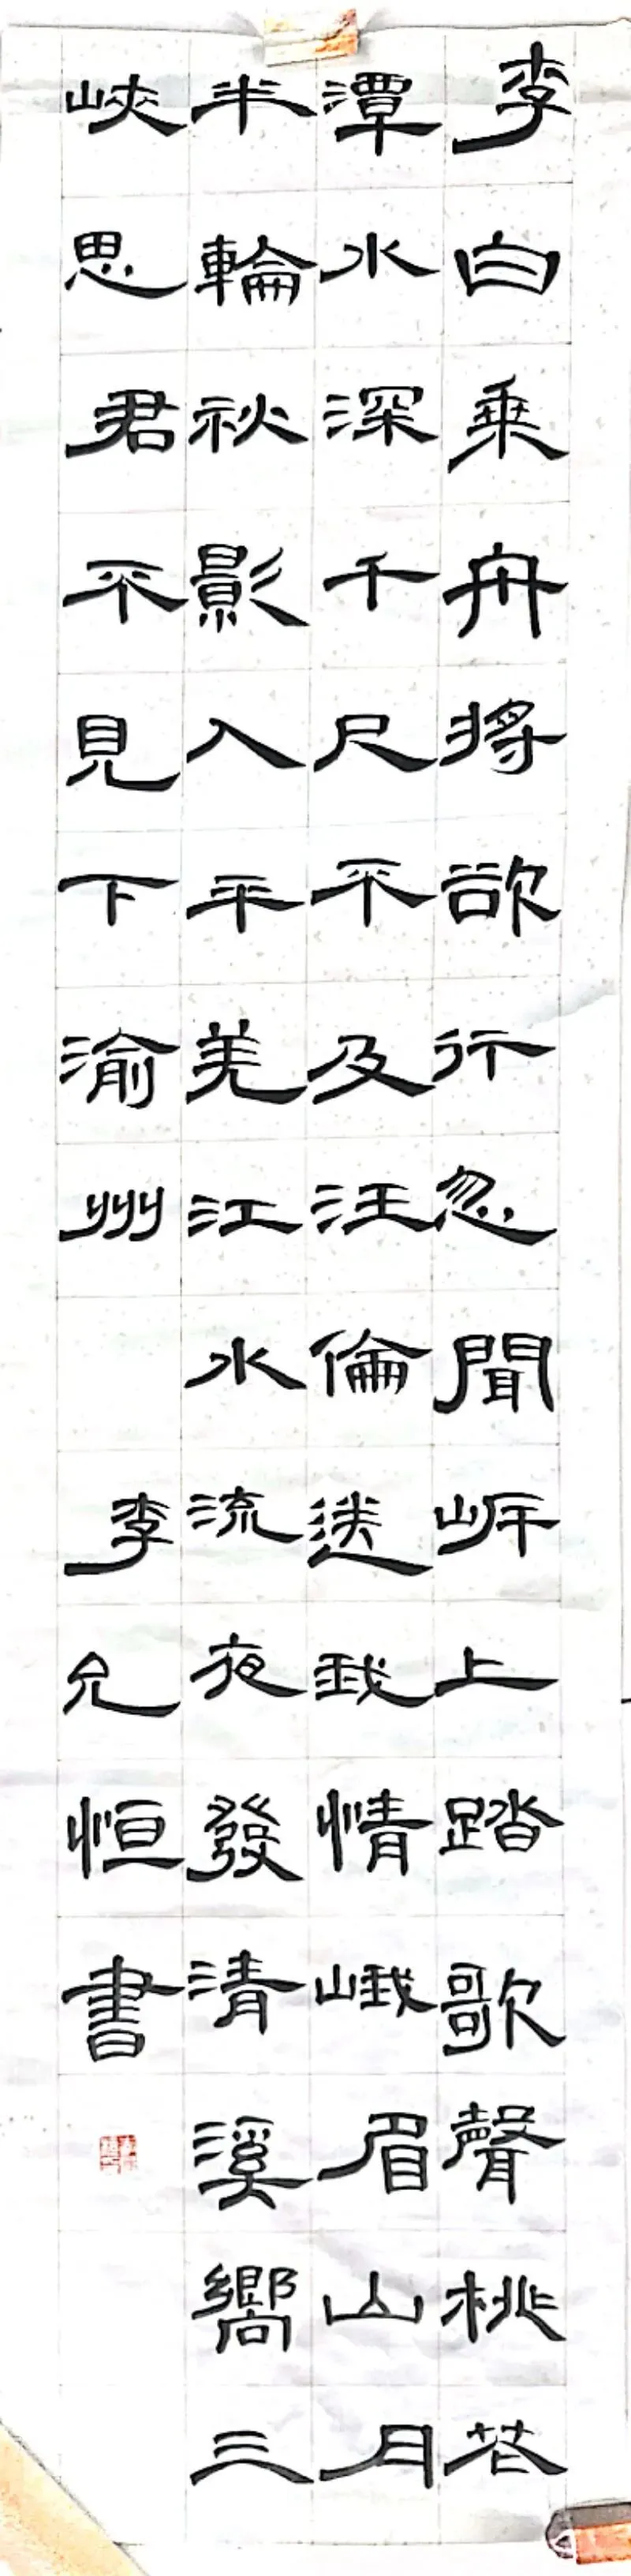 李白乘舟將欲行忽聞岸上踏歌聲桃花
潭水深千尺不及汪倫送我情峨眉山月
半輪秋影入平羌江水流夜發清溪嚮三
峽思君不見下渝州
李允恒書